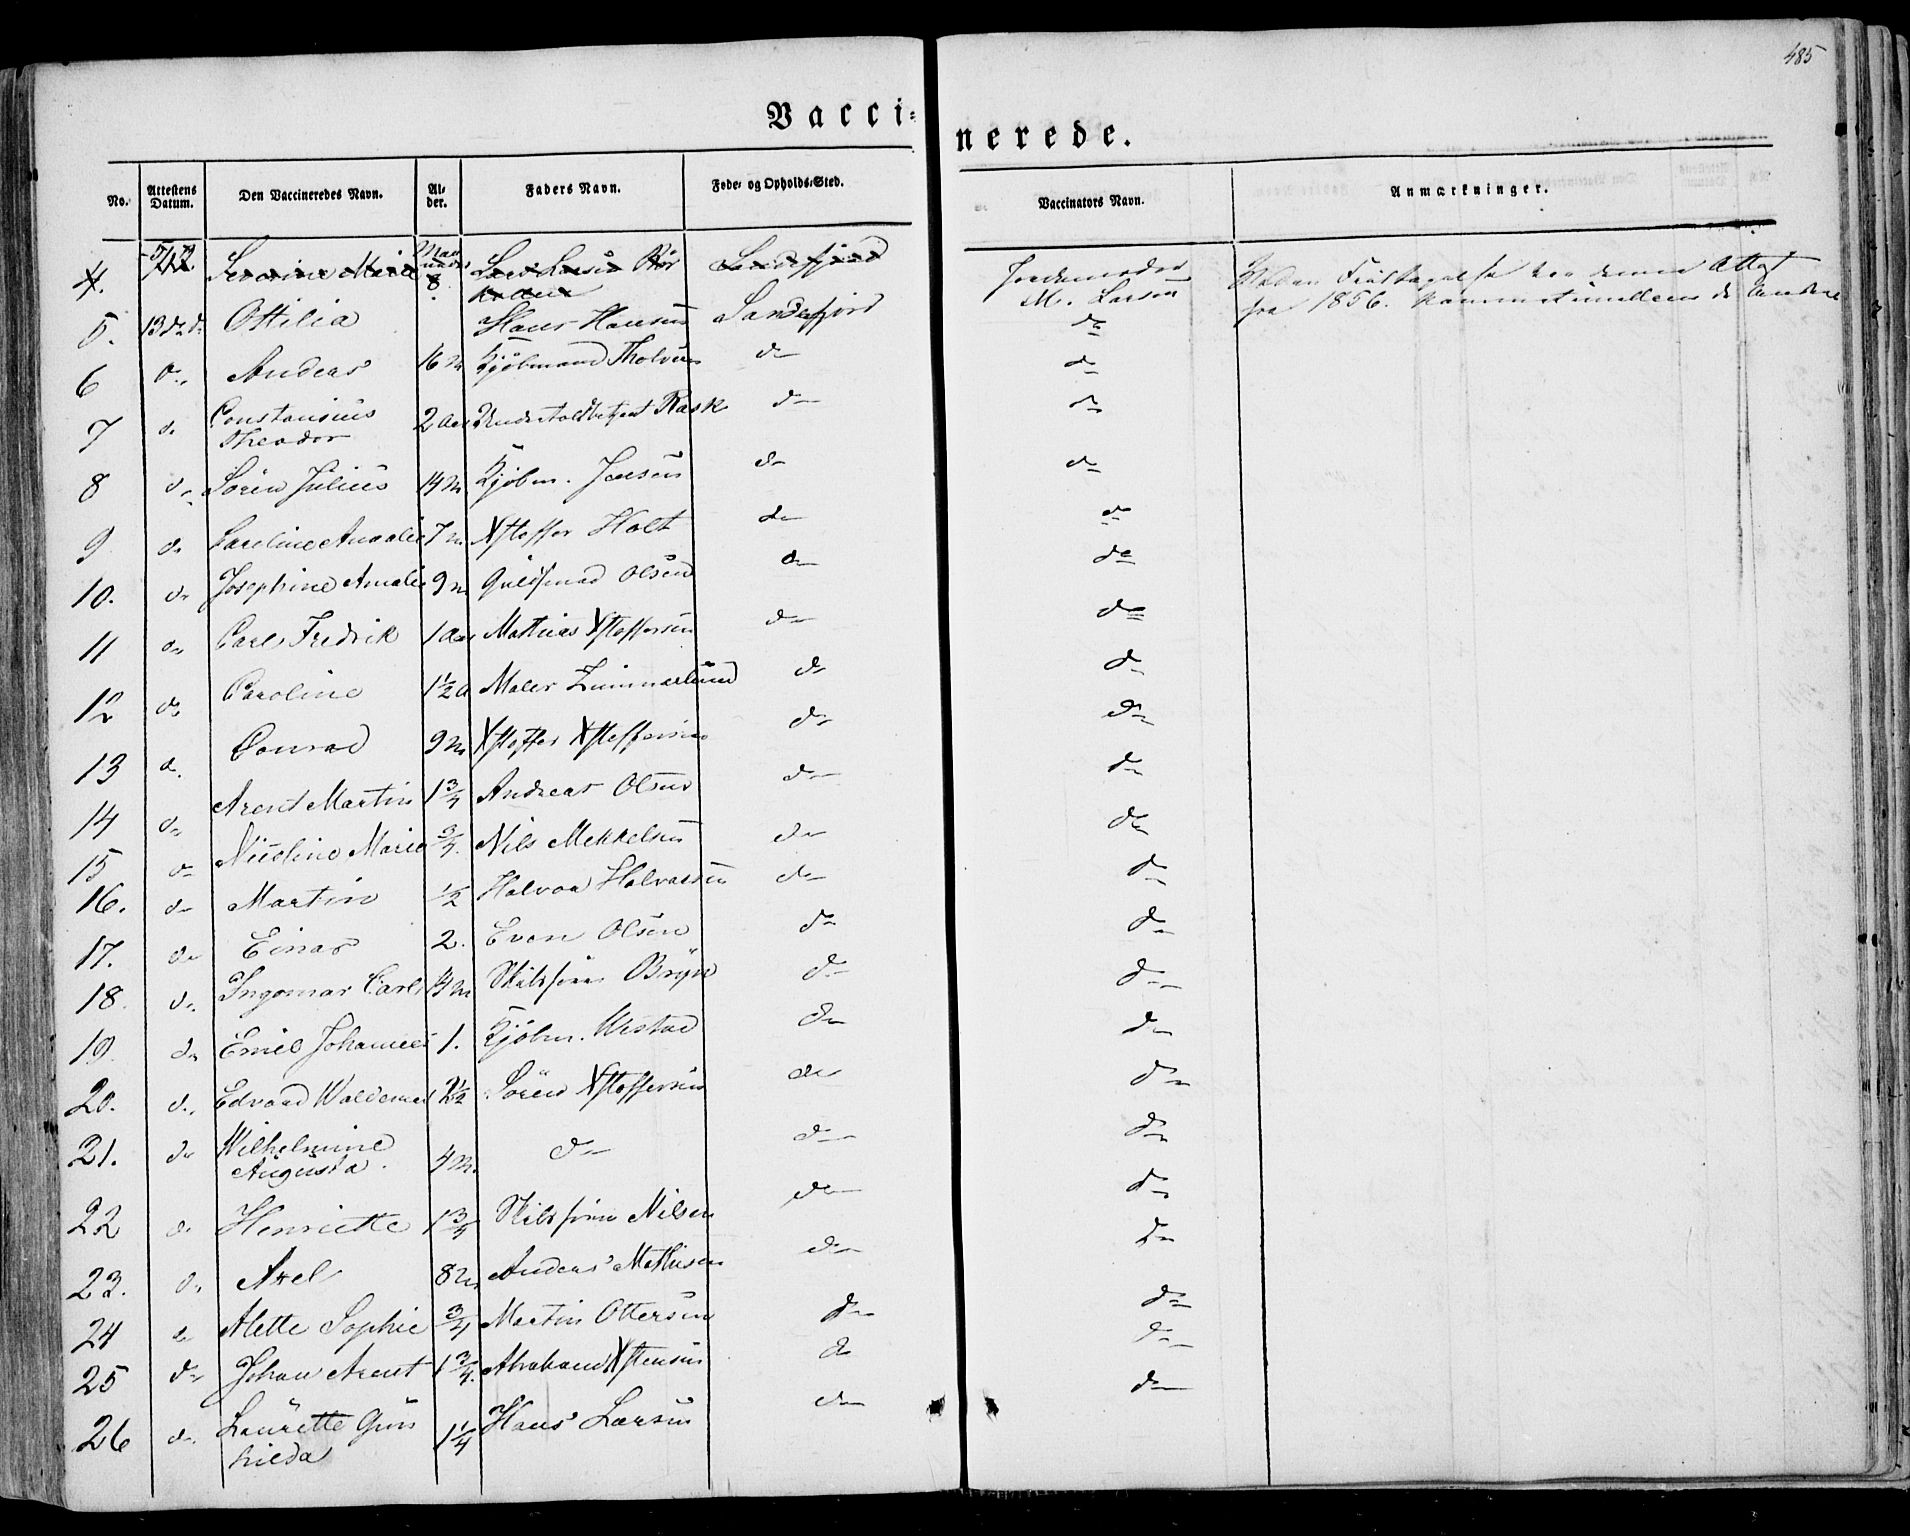 485
Vacci-nerede.
No. Attestens Datum. Den Vaccineredes Navn. Al-der. Faders Navn. Føde- og Opholds-Sted. Vaccinators Navn. Anmærkninger.
4. Severine Maria 8 Sandefjord Jordemoder
M. Larsen
fra 1856.
5. 13 d. d. Ottilia Hans Hansen Sandefjord do
6 d. Andeas 16 M Kjøbmand Tholvsen do do
7 d. Constansius
Theodor 2 Aar Undertoldbetjent Rask do do
8 d. Søren Julius 14 M Kjøbm. Jensen do do
9 d. Careline Amalie 7 m. Xstoffer Holt do do
10. d. Josephine Amalie 9 m Guldsmed Olsen do do
11 d. Carl Fredrik 1 Aar Mathias Xstoffersen do do
12 d. Caroline 1½ a Maler Zimmerlund do do
13 d. Conrad 9 M Xstoffer Xstoffersen do do
14 d. Arent Martin 1¾ Andreas Olsen do do
15 d. Nicoline Marie ¾. Nils Mekkelsen do do
16. d. Martin ½ Halvor Halvorsen do do
17. d. Einar 2. Even Olsen do do
18. d. Ingomar Carl 14 m Skibsfører Bryn do do
19. d. Emil Johannes 1. Kjøbm. Westad do do
20. d. Edvard Waldemar 2½ Søren Xstoffersen do do
21. d. Wilhelmine
Augusta. 4 m. do do do
22 d. Henriette 1¾ Skibsfører Nilsen do do
23. d. Axel 8 m Andeas Mathisen do do
24 d. Alette Sophie ¾ Martin Ottersen do do
25 d. Johan Arent 1¾. Abraham Xstensen do do
26 d. Laurette Gun
hilda 1¼ Hans Larsen do do